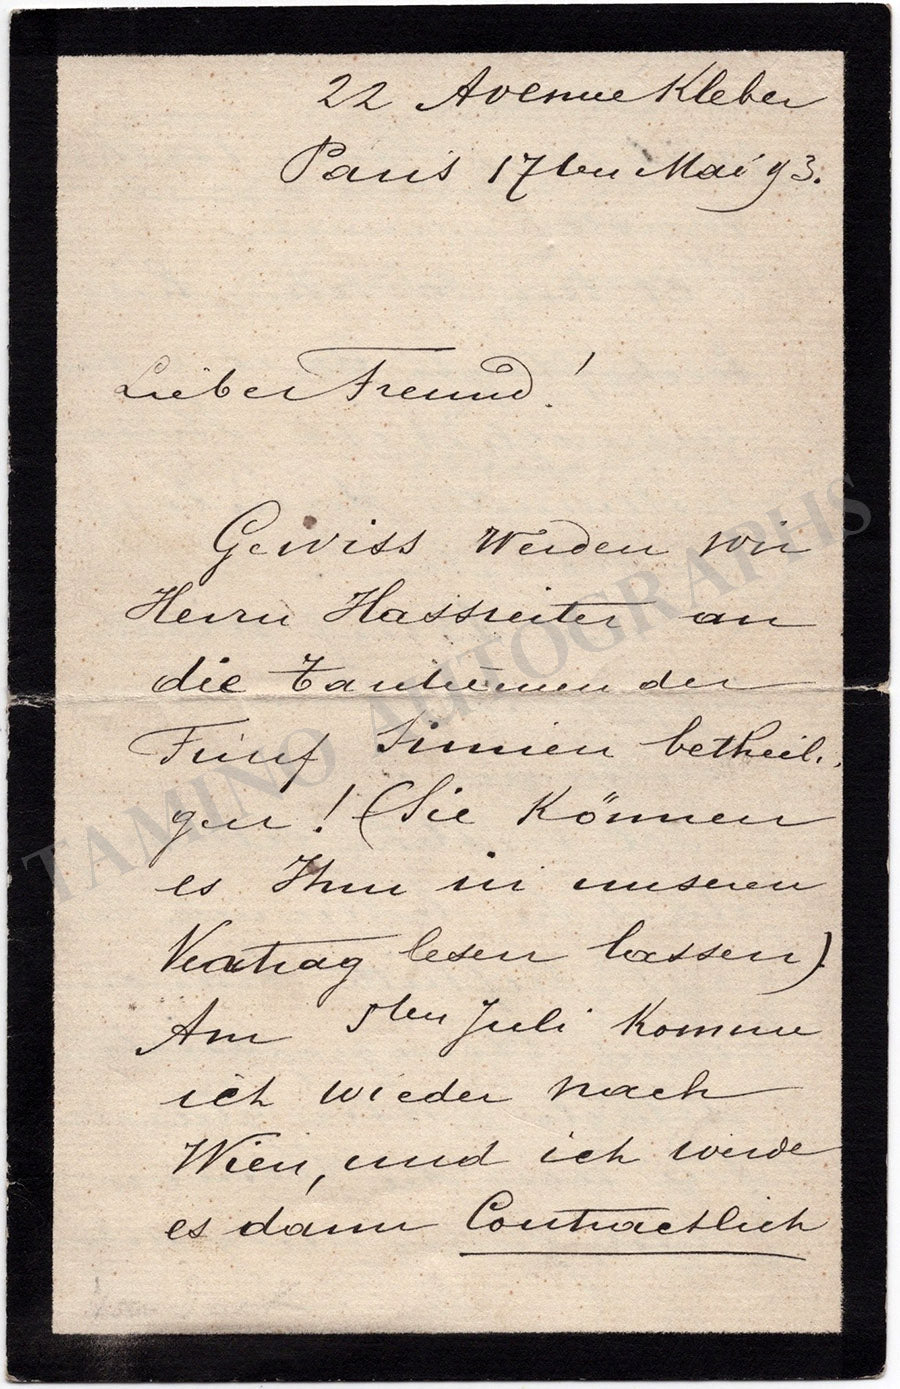 22 Avenue Kleber
Paris 17ten Mai 93.
Lieber Freund!
Gewiss werden wir
Herrn Hassreiter an
die Tantiemen der
Fünf Sinnen betheili-
gen! (Sie können
es Ihm in unseren
Vertrag lesen lassen)
Am 5ten Juli komme
ich wieder nach
Wien, und ich werde
es dann Contractlich
TAMINO AUTOGRAPHS